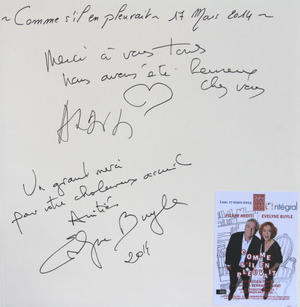 ~ Comme s'il en pleuvait ~ 17 Mars 2014 ~
Merci à vous tous
Nous avons été heureux
chez vous
Un grand merci
pour votre chaleureux accueil
Amitiés
Evelyne Buyle
2014
l'intégral
PIERRE ARDITI EVELYNE BUYLE
COMME
S'IL EN
PLEUVAIT